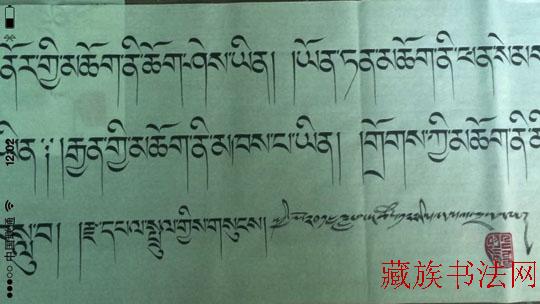 ནོར་གྱི་མཆོག་ནི་ཆོག་ཤེས་ཡིན། །ཡོན་ཏན་མཆོག་ནི་ཕན་སེམས
ཡིན༔ །རྒྱན་གྱི་མཆོག་ནི་མཁས་པ་ཡིན། གྲོགས་ཀྱི་མཆོག་ནི་མི
སླུ་བ། །རྫ་དཔལ་སྤྲུལ་གྱིས་གསུངས།
藏族书法网
12:02
中国联通